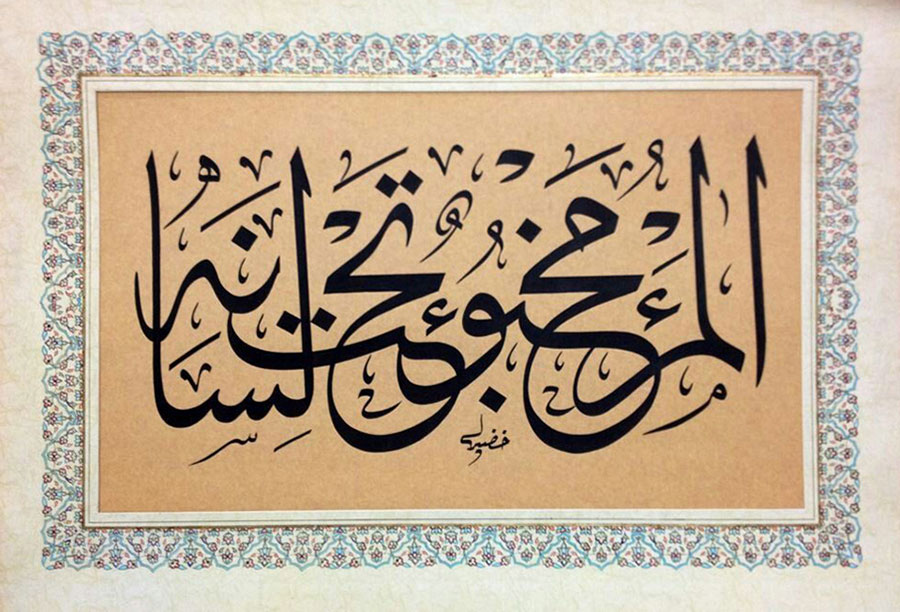 المرء مخبوء تحت لسانه